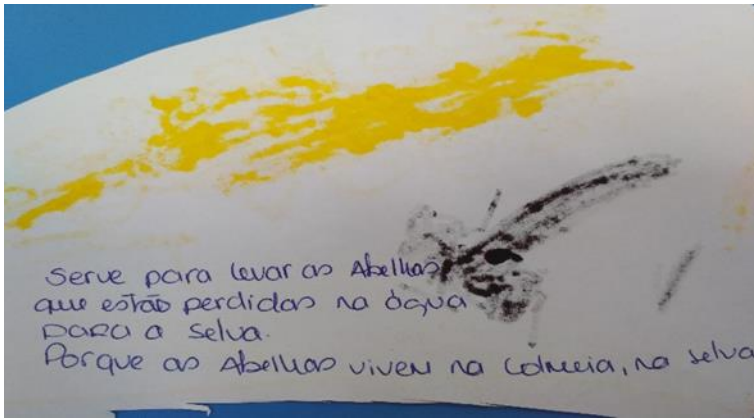 Serve para levar as Abelhas
que estão perdidas na água
para a selva.
Porque as Abelhas vivem na Colmeia, na selva